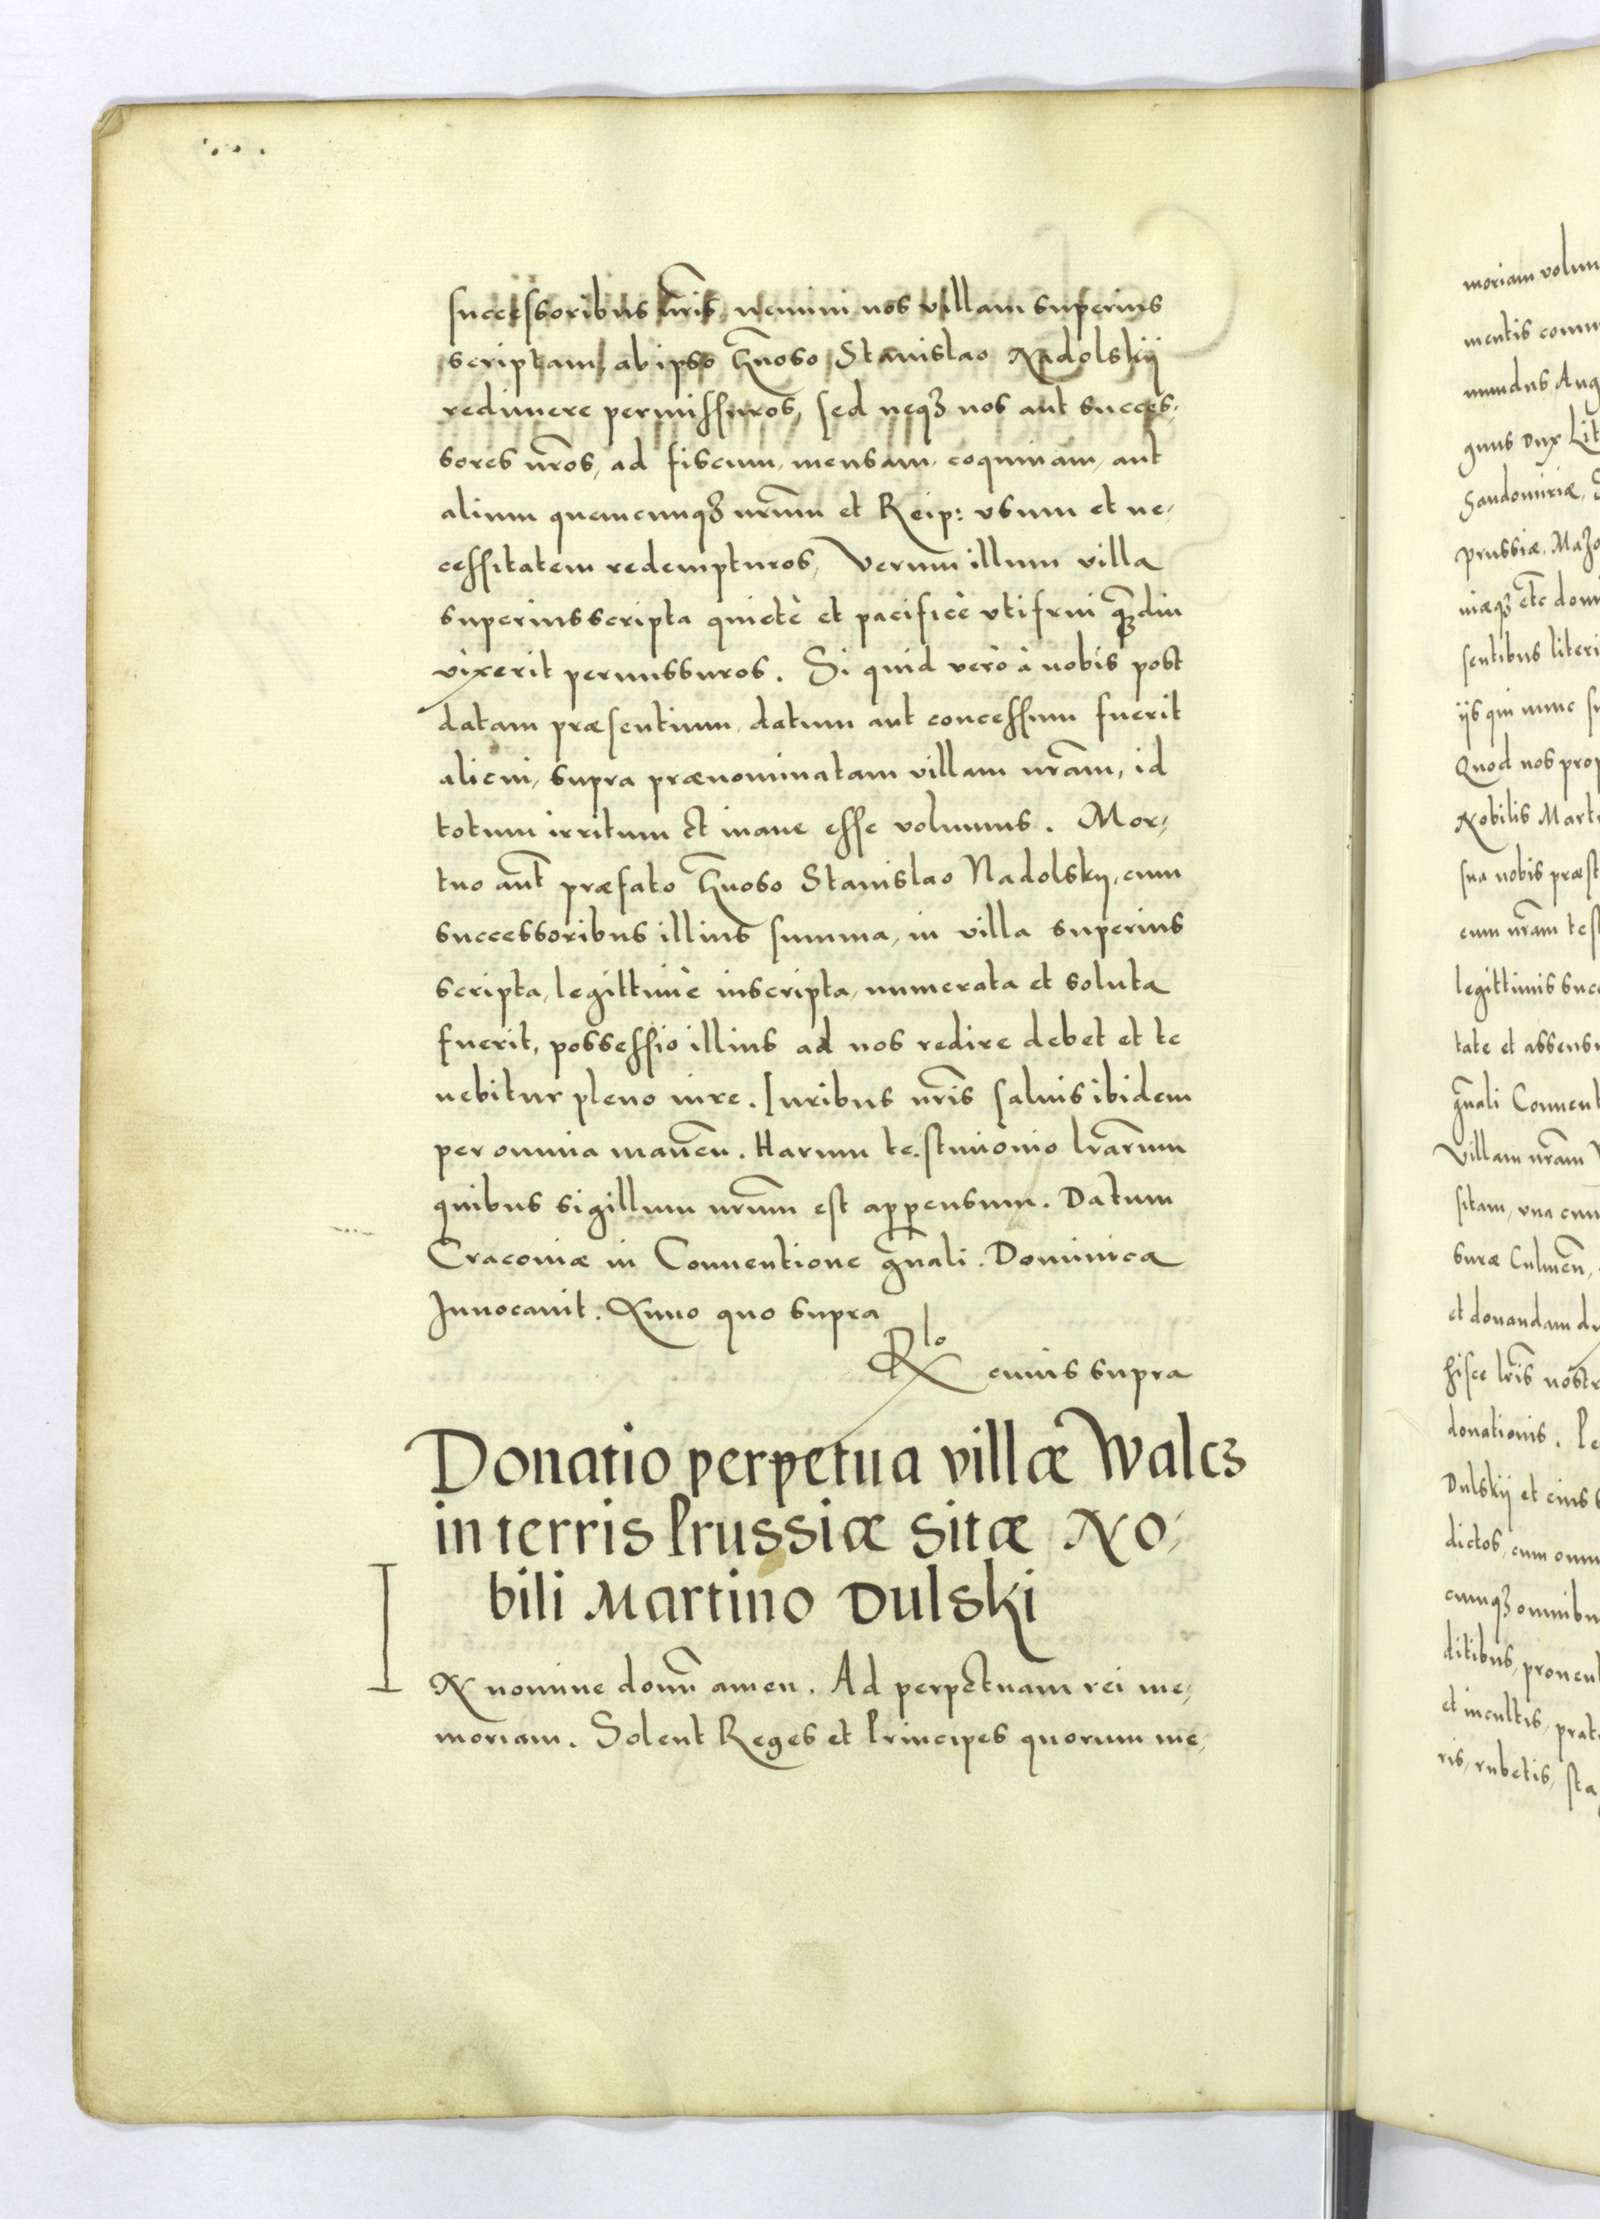 successoribus nr̃is, nemini nos villam superius
scriptam, ab ipso Gñoso Stanislao Nadolskij
redimere permissuros, sed neqꝫ nos aut succes,
sores nr̃os, ad fiscum, mensam, coquinam, aut
alium quemcunqꝫ nr̃um et Reip: vsum et ne,
cessitatem redempturos, Verum illum villa
superius scripta quietè et pacificè vti frui qꝫdiu
vixerit permissuros. Si quid verò à nobis post
datam præsentium, datum aut concessum fuerit
alicui, supra prænominatam villam nr̃am, id
totum irritum et inane esse volumus. Mor,
tuo aut̃ præfato Gñoso Stanislao Nadolskij, cum
successoribus illius summa, in villa superius
scripta, legittimè inscripta, numerata et soluta
fuerit, possessio illius ad nos redire debet et te
nebitur pleno iure. Iuribus nr̃is saluis ibidem
per omnia maneñ. Harum testimonio lr̃arum
quibus sigillum nr̃um est appensum. Datum
Cracouiæ in Conuentione gñali. Dominica
Inuocauit. Anno quo supra
Rlo cuius supra
Donatio perpetua villæ Walcz
in terris Prussiæ sitæ No,
bili Martino Dulski
IN nomine domĩ amen. Ad perpetuam rei me,
moriam. Solent Reges et Principes quorum me,
moriam volun
mentis comm
mundus Aug
gnus Dux Lit
Sandomiriæ, S
Prussiæ, Mazo
niæqꝫ etc̃ domi
sentibus literi
ijs qui nunc su
Quod nos prop
Nobilis Marti
sua nobis præst
cum nr̃am test
legittimis succ
tate et assensu
gñali Conuent
Villam nr̃am W
sitam, vna cum
suræ Culmeñ,
et donandam du
hisce lr̃is nostr
donationis. Pe
Dulskij et eius s
dictos, cum omn
cumqꝫ omnibu
ditibus, prouent
et incultis, prat
ris, rubetis, sta